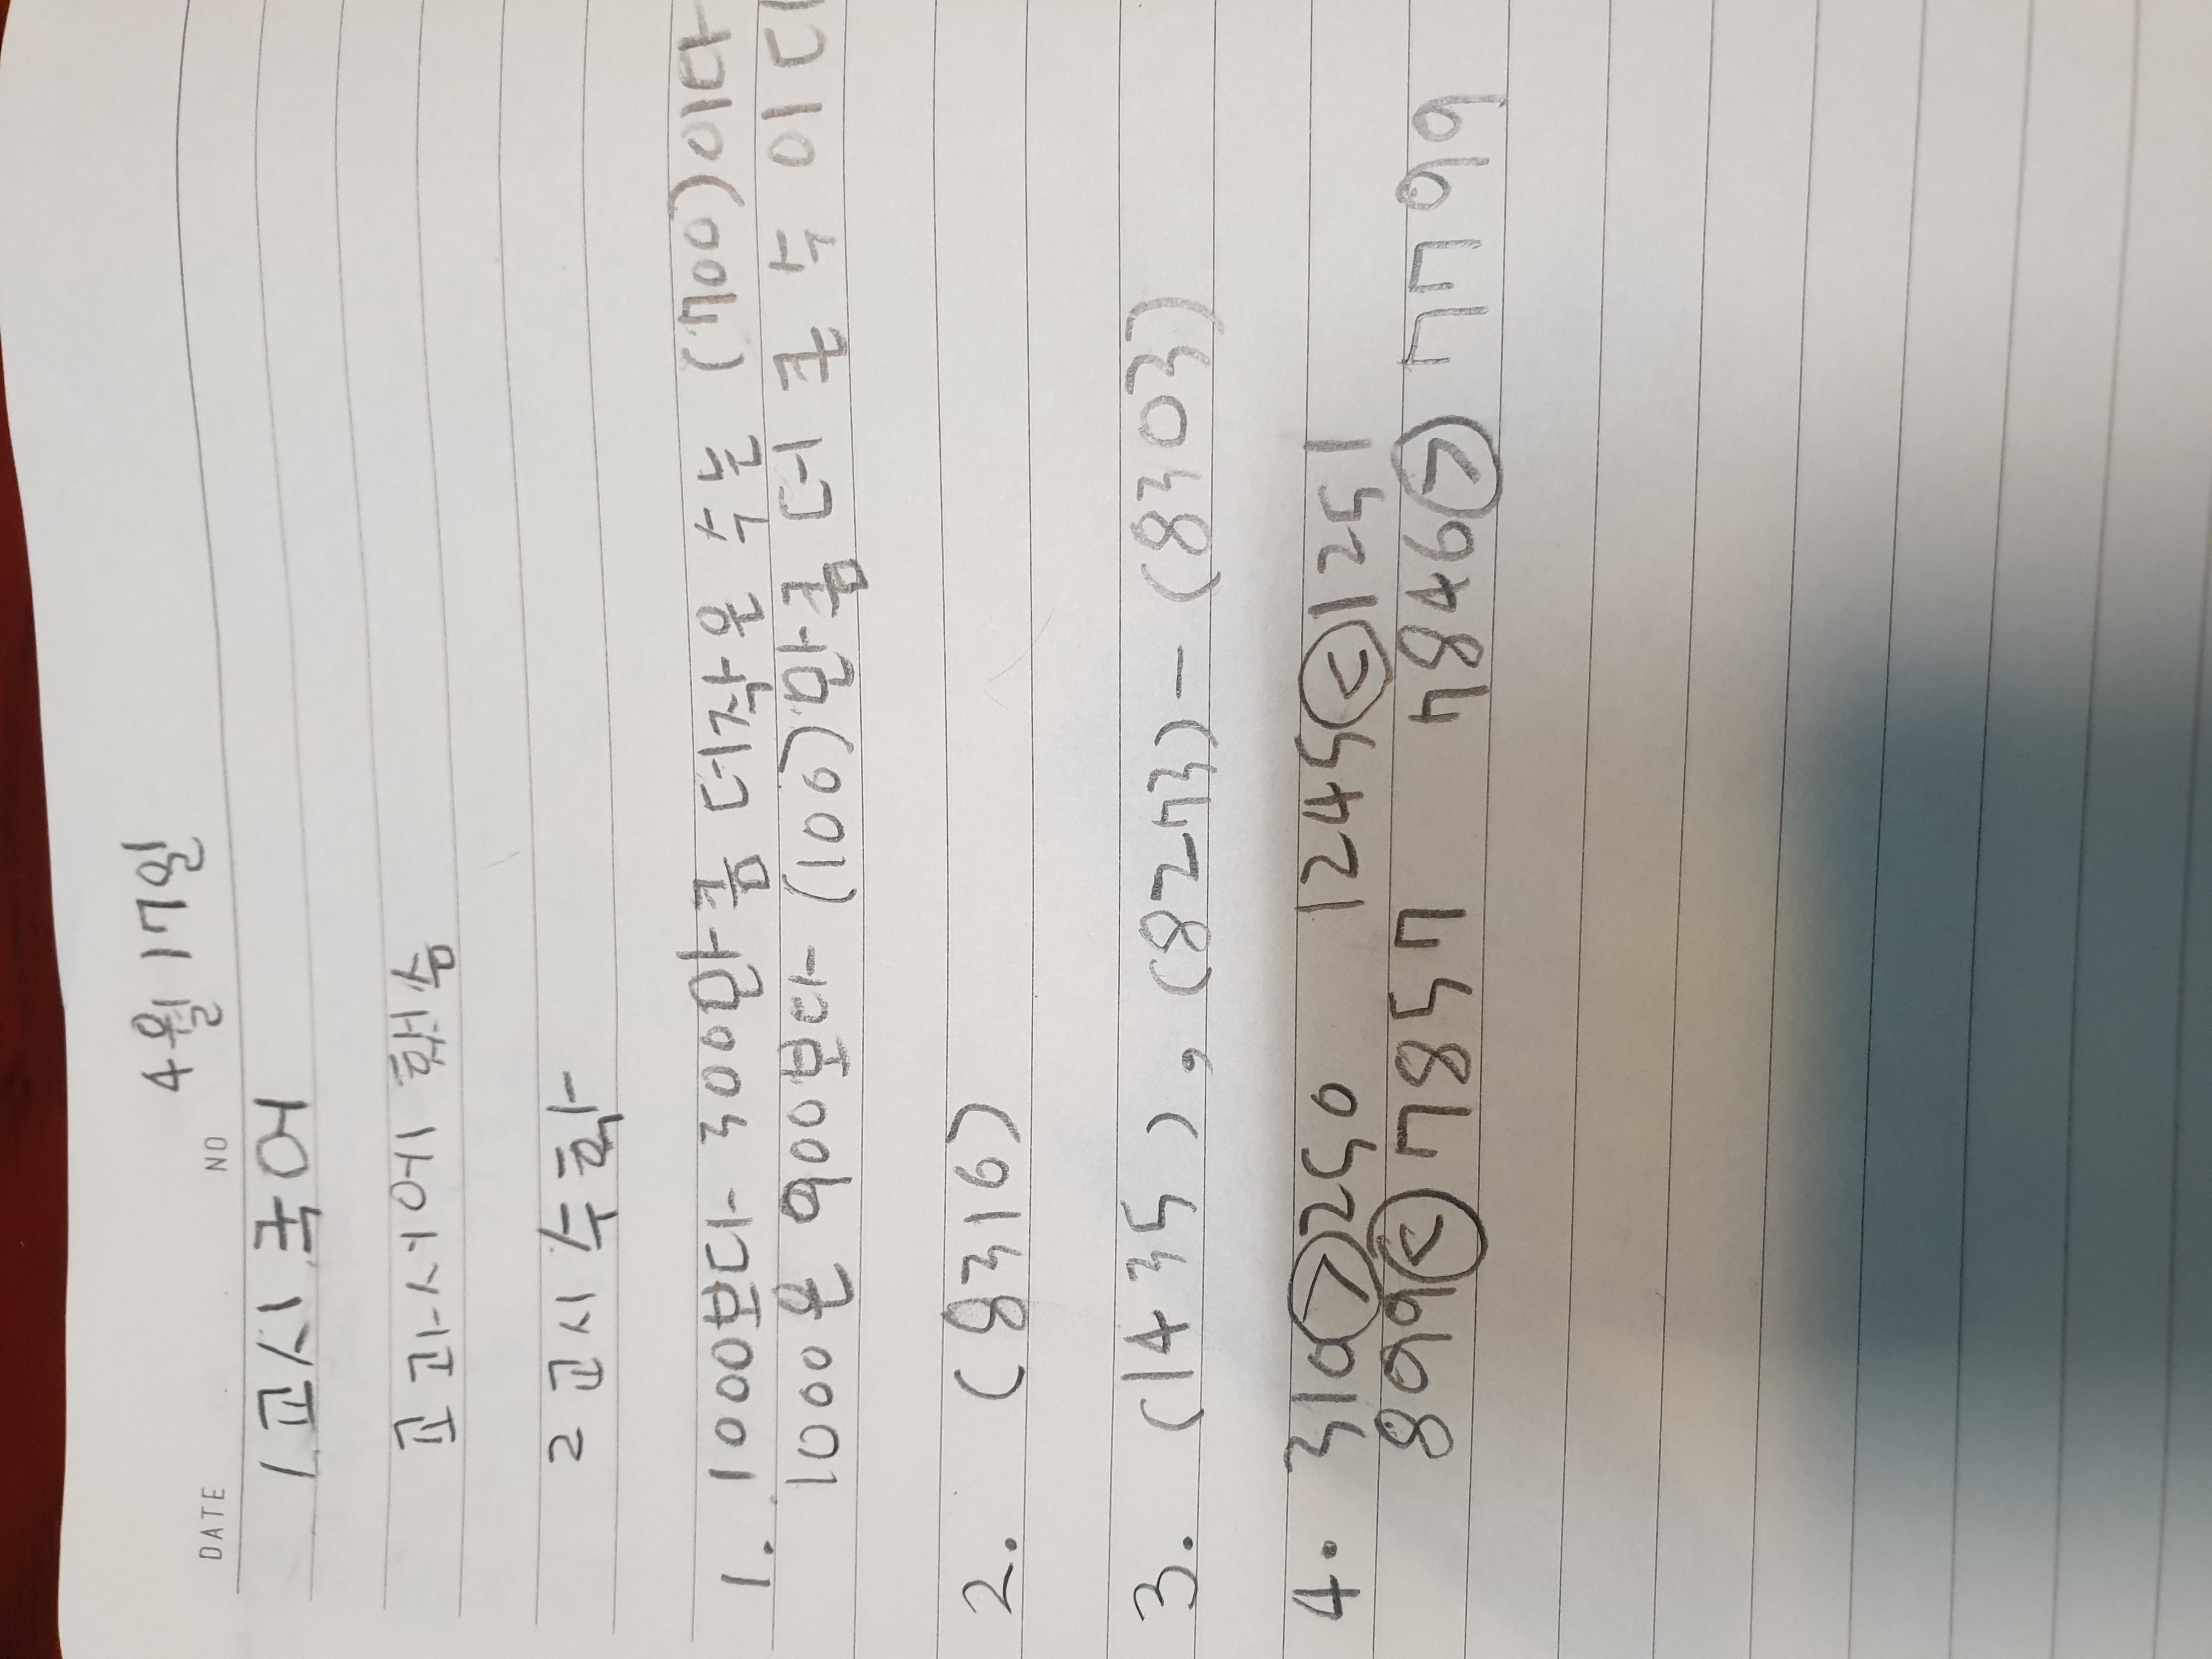 DATE NO 4월 17일
1교시국어
교과서에 했슴
2교시 수학
1. 1000보다 300만큼 더작은 수는 (700)이다
1000은 900보다 (100)만큼 더 큰 수 이다
2. (8316)
3. (1435), (8273)-(8303)
4. 310>250 1245<1251
899<7857 7846>7799